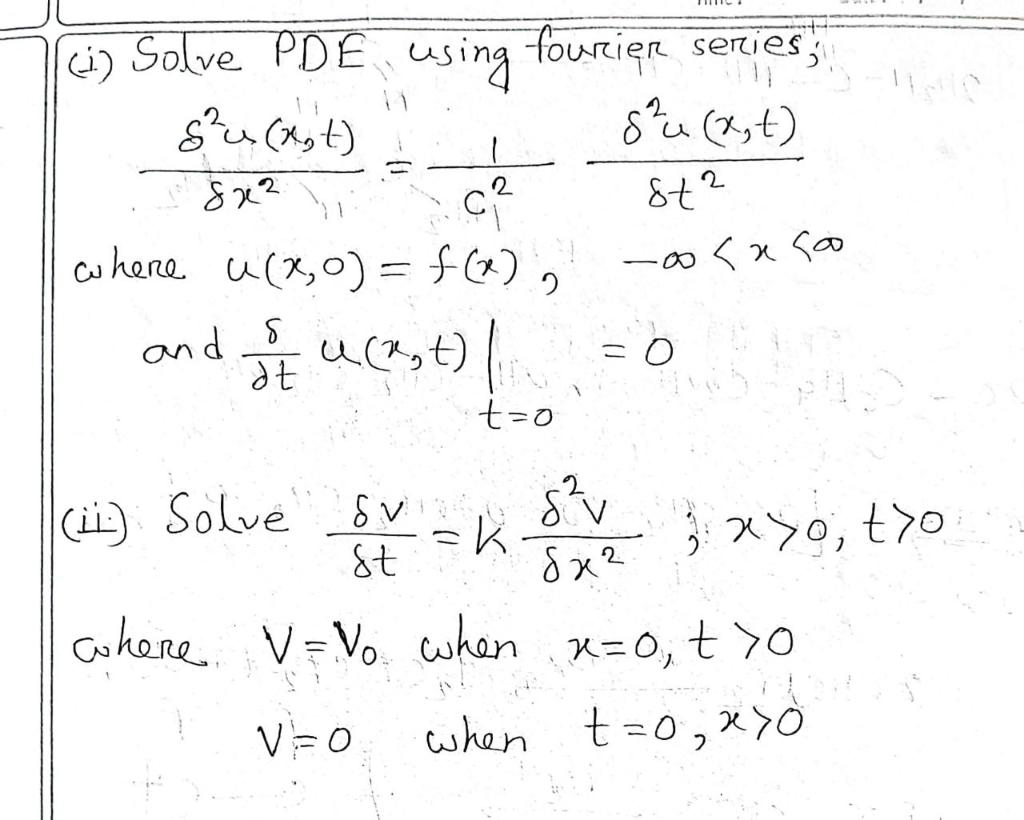 (i) Solve PDE using fourier series;
δ²u(x,t)/δx² = 1/c² δ²u(x,t)/δt²
where u(x,0) = f(x), -∞ < x < ∞
and δ/∂t u(x,t) | t=0 = 0
(ii) Solve δv/δt = k δ²v/δx² ; x>0, t>0
where V = V₀ when x=0, t>0
V=0 when t=0, x>0